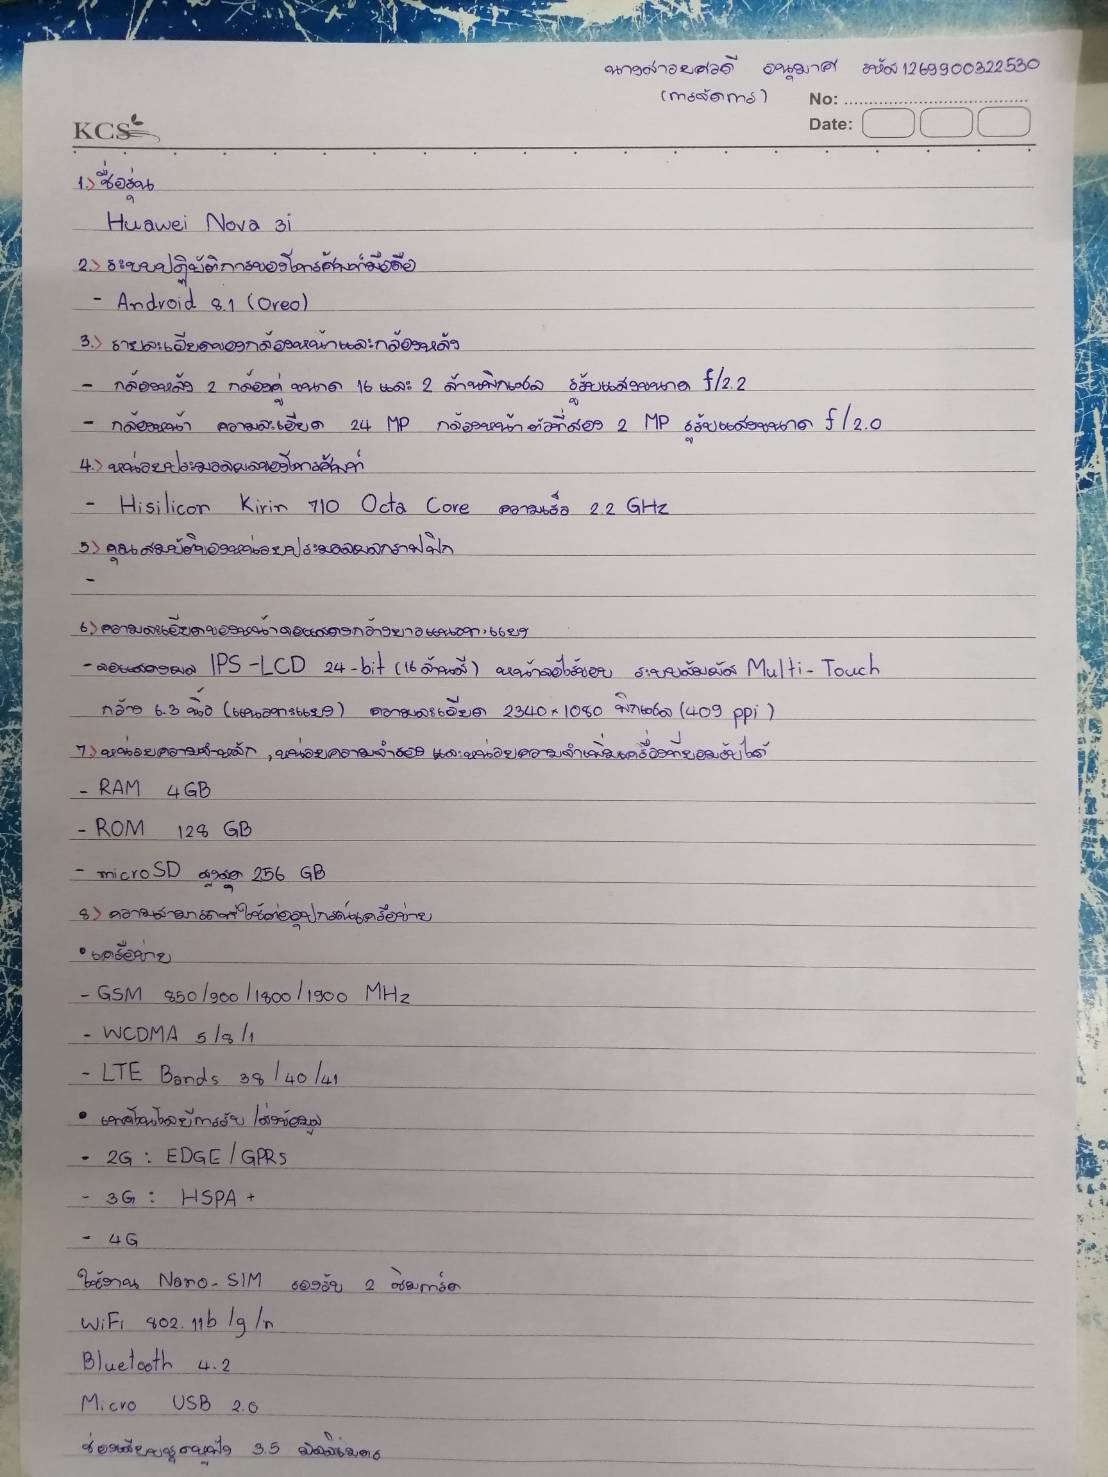 นางสาวยศวดี อนุมาศ รหัส 1269900322530
(การจัดการ)
No:
Date:
KCS
1.) ชื่อรุ่น
Huawei Nova 3i
2.) ระบบปฏิบัติการของโทรศัพท์มือถือ
- Android 8.1 (Oreo)
3.) รายละเอียดของกล้องหน้าและกล้องหลัง
- กล้องหลัง 2 กล้องคู่ ขนาด 16 และ 2 ล้านพิกเซล รูรับแสงขนาด f/2.2
- กล้องหน้า ความละเอียด 24 MP กล้องหน้าตัวที่สอง 2 MP รูรับแสงขนาด f/2.0
4.) หน่วยประมวลผลของโทรศัพท์
- Hisilicon Kirin 710 Octa Core ความเร็ว 2.2 GHz
5.) คุณสมบัติของหน่วยประมวลผลกราฟฟิก
-
6.) ความละเอียดของหน้าจอแสดงกว้างยาวแนวทะแยง
- จอแสดงผล IPS-LCD 24-bit (16 ล้านสี) หน้าจอไร้ขอบ ระบบสัมผัส Multi-Touch
กว้าง 6.3 นิ้ว (แนวทะแยง) ความละเอียด 2340 × 1080 พิกเซล (409 ppi)
7.) หน่วยความจำหลัก, หน่วยความจำรอง และหน่วยความจำเพิ่มเครื่องที่ยอมรับได้
- RAM 4GB
- ROM 128 GB
- microSD สูงสุด 256 GB
8.) ความสามารถที่ใช้ต่ออุปกรณ์เครือข่าย
• เครือข่าย
- GSM 850/900/1800/1900 MHz
- WCDMA 5/8/1
- LTE Bands 38/40/41
• เทคโนโลยีการรับ/ส่งข้อมูล
- 2G : EDGE/GPRS
- 3G : HSPA +
- 4G
ใช้งาน Nano-SIM รองรับ 2 ซิมการ์ด
WiFi 802.11b/g/n
Bluetooth 4.2
Micro USB 2.0
ช่องเสียบหูฟัง 3.5 มิลลิเมตร